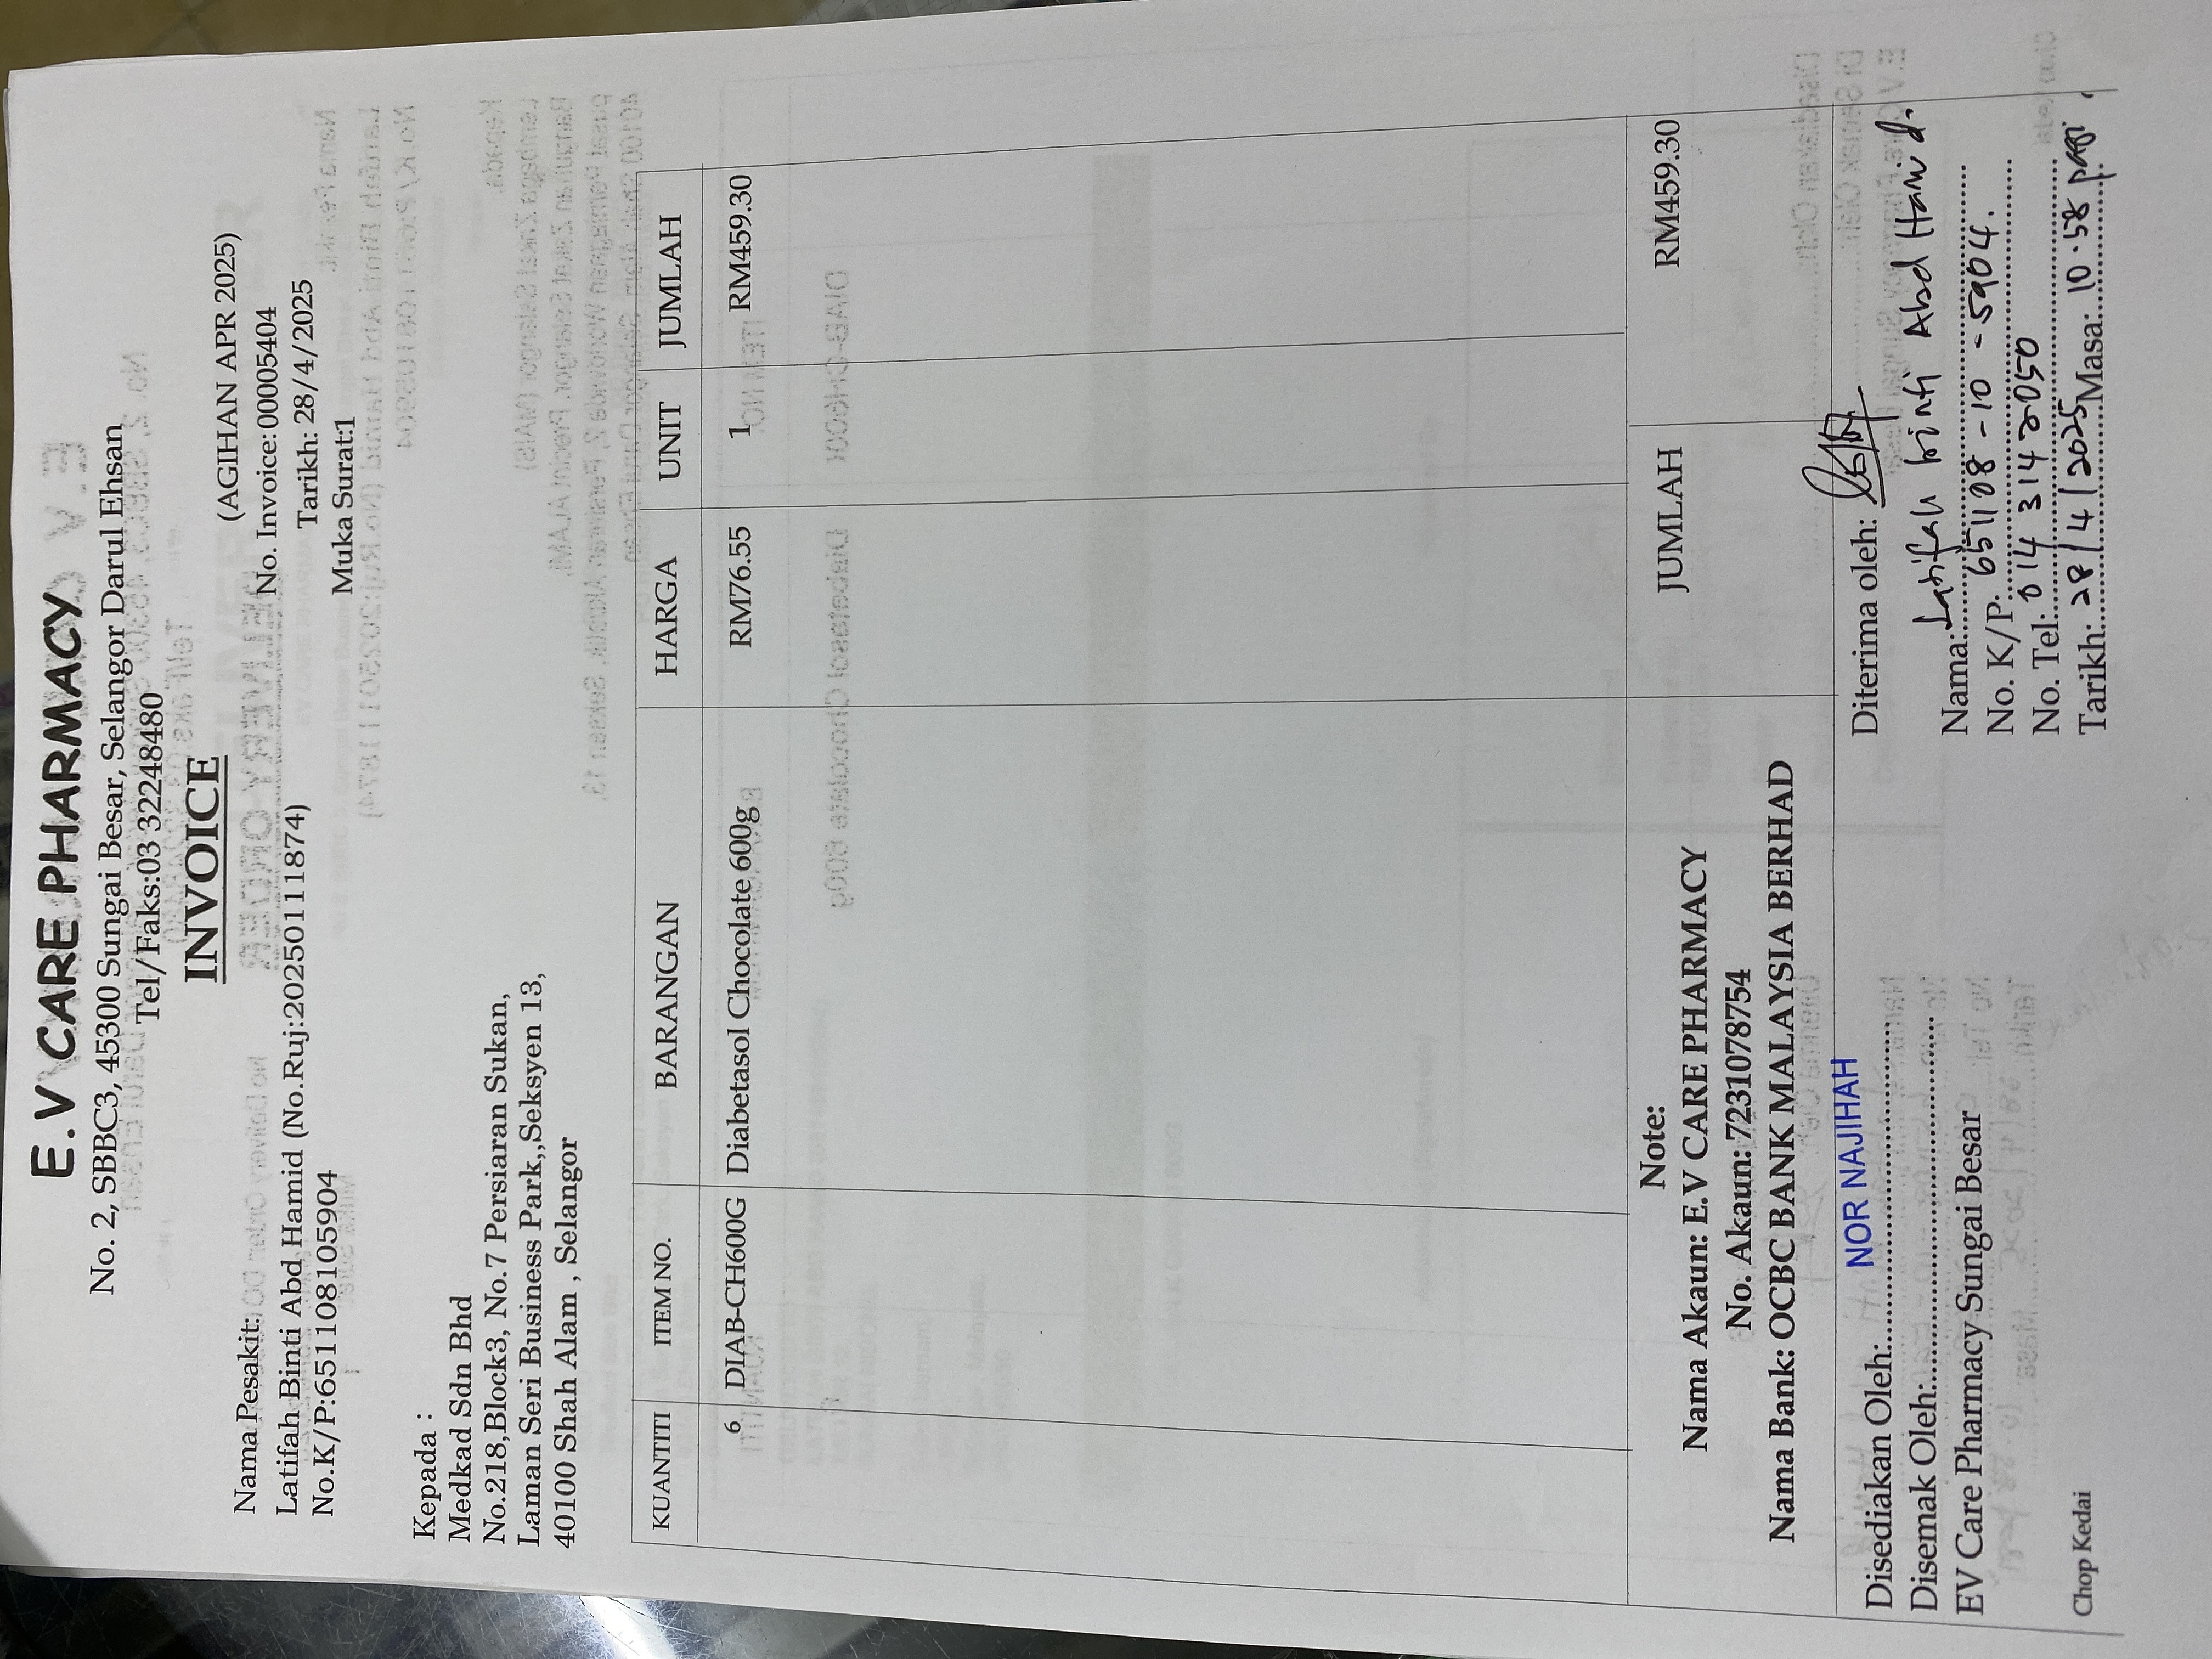 E.V CARE PHARMACY
No. 2, SBBC3, 45300 Sungai Besar, Selangor Darul Ehsan
Tel/Faks:03 32248480
INVOICE
(AGIHAN APR 2025)
Nama Pesakit:
No. Invoice: 00005404
Latifah Binti Abd Hamid (No.Ruj:20250111874)
Tarikh: 28/4/2025
No.K/P:651108105904
Muka Surat:1
Kepada :
Medkad Sdn Bhd
No.218,Block3, No.7 Persiaran Sukan,
Laman Seri Business Park,,Seksyen 13,
40100 Shah Alam , Selangor
KUANTITI ITEM NO. BARANGAN HARGA UNIT JUMLAH
6 DIAB-CH600G Diabetasol Chocolate 600g RM76.55 1 RM459.30
Note:
Nama Akaun: E.V CARE PHARMACY
No. Akaun: 7231078754
Nama Bank: OCBC BANK MALAYSIA BERHAD
JUMLAH RM459.30
Disediakan Oleh:.......... NOR NAJIHAH
Disemak Oleh:..........
EV Care Pharmacy Sungai Besar
Chop Kedai
Diterima oleh:
Nama: Latifah binti Abd Hamid.
No. K/P: 651108-10-5904.
No. Tel: 014 3142050
Tarikh: 28/4/2025 Masa: 10.58 pagi